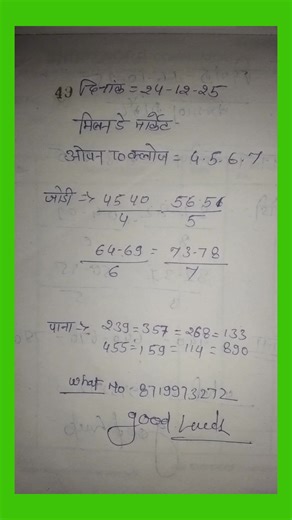 49 दिनांक = 24-12-25
मिलन डे मार्केट
ओपन To क्लोज = 4.5.6.7
जोडी → 45 40 5651
4 5
64-69 = 73-78
6 7
पाना → 239 = 357 = 268 = 133
455 = 159 = 114 = 890
what No - 8719973272
good Luck